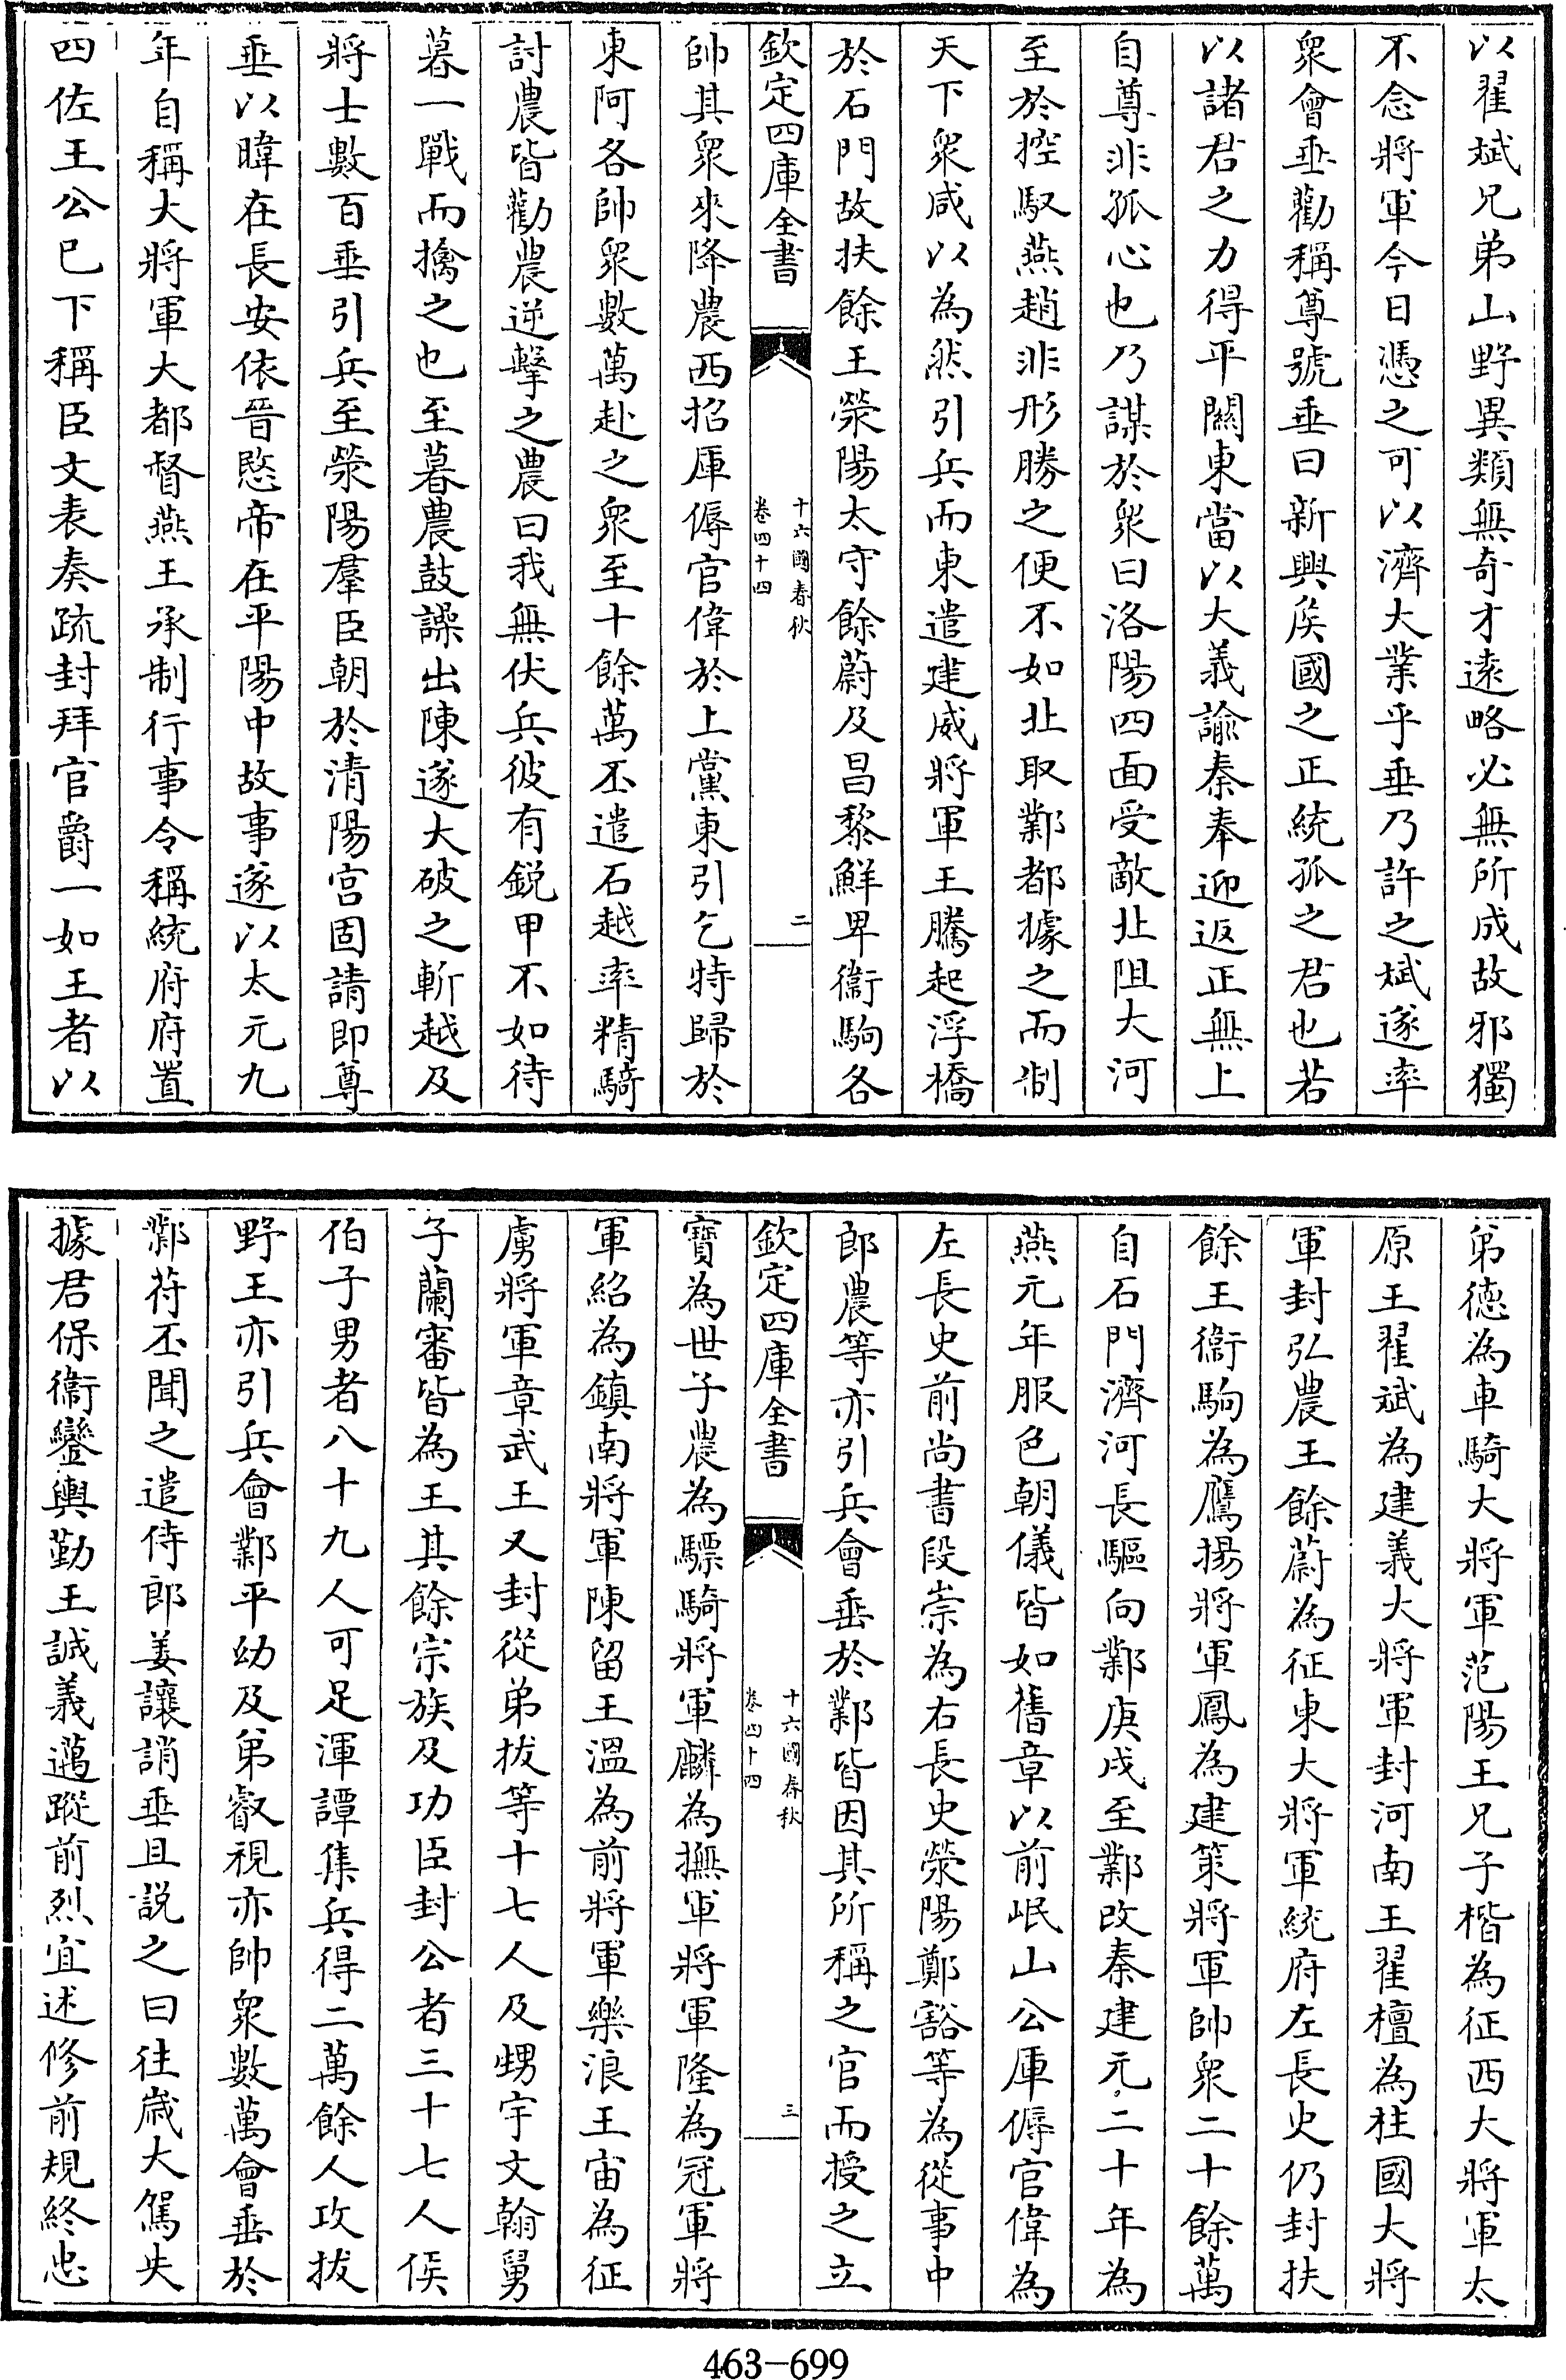 以翟斌兄弟山野異類無奇才逺略必無所成故邪獨
不念將軍今日憑之可以濟大業乎垂乃許之斌遂率
衆會垂勸稱尊號垂曰新興矦國之正統孤之君也若
以諸君之力得平關東當以大義諭秦奉迎返正無上
自尊非孤心也乃謀於衆曰洛陽四面受敵北阻大河
至於控馭燕趙非形勝之便不如北取鄴都據之而制
天下衆咸以為然引兵而東遣建威將軍王騰起浮橋
於石門故扶餘王滎陽太守餘蔚及昌黎鮮卑衞駒各
欽定四庫全書
十六國春秋
卷四十四
二
帥其衆來降農西招厙傉官偉於上黨東引乞特歸於
東阿各帥衆數萬赴之衆至十餘萬丕遣石越率精騎
討農皆勸農逆擊之農曰我無伏兵彼有鋭甲不如待
暮一戰而擒之也至暮農鼓譟出陳遂大破之斬越及
將士數百垂引兵至滎陽羣臣朝於清陽宫固請即尊
垂以暐在長安依晉愍帝在平陽中故事遂以太元九
年自稱大將軍大都督燕王承制行事令稱統府府置
四佐王公已下稱臣文表奏疏封拜官爵一如王者以
弟德為車騎大將軍范陽王兄子楷為征西大將軍太
原王翟斌為建義大將軍封河南王翟檀為柱國大將
軍封弘農王餘蔚為征東大將軍統府左長史仍封扶
餘王衞駒為鷹揚將軍鳳為建策將軍帥衆二十餘萬
自石門濟河長驅向鄴庚戌至鄴改秦建元二十年為
燕元年服色朝儀皆如舊章以前岷山公厙傉官偉為
左長史前尚書段崇為右長史滎陽鄭豁等為從事中
郎農等亦引兵會垂於鄴皆因其所稱之官而授之立
欽定四庫全書
十六國春秋
卷四十四
三
寶為世子農為驃騎將軍麟為撫軍將軍隆為冠軍將
軍紹為鎮南將軍陳留王溫為前將軍樂浪王宙為征
虜將軍章武王又封從弟拔等十七人及甥宇文翰舅
子蘭審皆為王其餘宗族及功臣封公者三十七人矦
伯子男者八十九人可足渾譚集兵得二萬餘人攻拔
野王亦引兵會鄴平幼及弟叡視亦帥衆數萬會垂於
鄴苻丕聞之遣侍郎姜讓誚垂且説之曰往歲大駕失
據君保衞鑾輿勤王誠義邁蹤前烈宜述修前規終忠
463-699